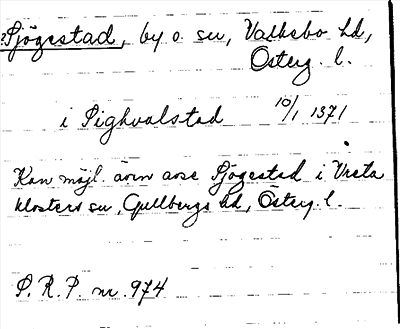 ?Sjögestad, by o. sn, Valkebo hd,
Österg. l.
i Sighvalstad 10/1 1371
Kan möjl. även avse Sjögestad i Vreta
klosters sn, Gullbergs hd, Österg. l.
S. R. P. nr. 974